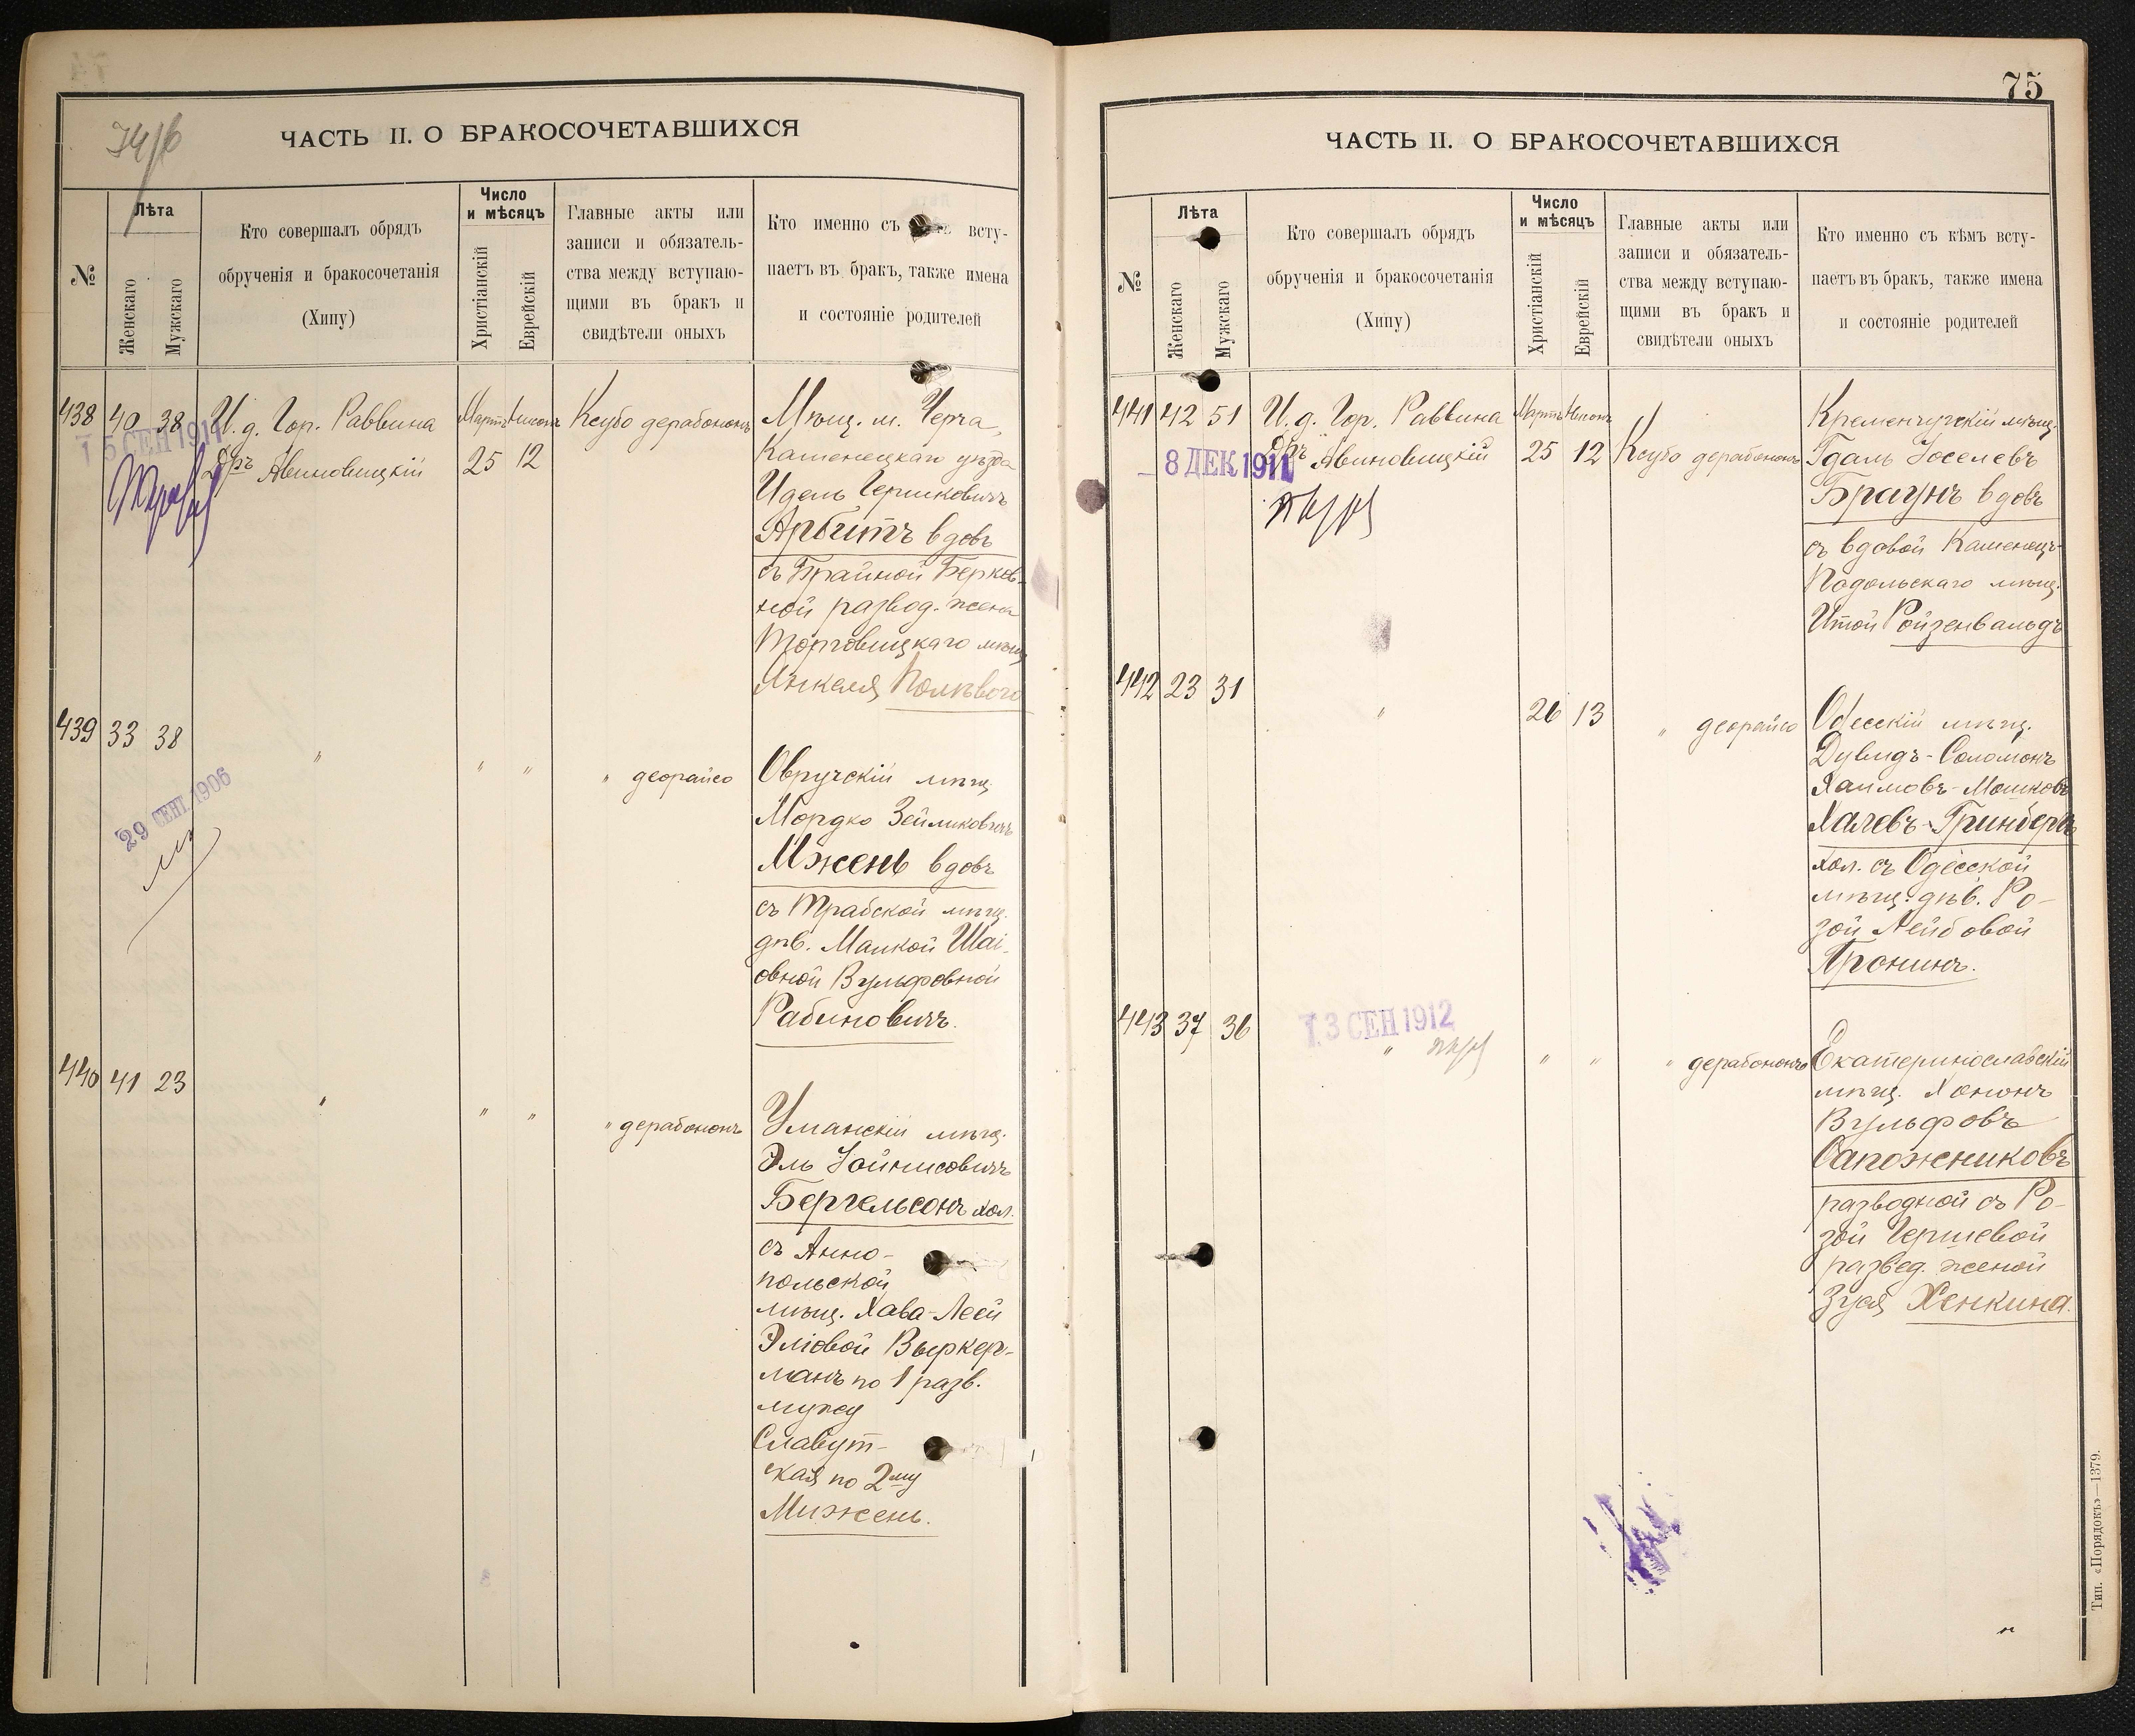 74/б
ЧАСТЬ II. О БРАКОСОЧЕТАВШИХСЯ
№
Лѣта
Женскаго
Мужскаго
Кто совершалъ обрядъ
обрученія и бракосочетанія
(Хипу)
Число
и мѣсяцъ
Христіанскій
Еврейскій
Главные акты или
записи и обязатель-
ства между вступаю-
щими въ бракъ и
свидѣтели оныхъ
Кто именно съ всту-
паетъ въ бракъ, также имена
и состояніе родителей
438 40 38 И. д. Гор. Раввина Мартъ Нисонъ Ксубо дерабононъ
15 СЕН 1911
Дръ Авиновицкій 25 12
Мѣщ. м. Черча,
Каменецкаго уѣзда
Идель Гершковичъ
Арбитъ вдовъ
съ Брайной Берков-
ной развод. жена
Торговицкаго мѣщ
Янкеля Полѣвого
439 33 38 " " " " деорайсо
29 СЕН. 1906
Овручскій мѣщ.
Мордко Зейликовичъ
Мжень вдовъ
съ Трабской мѣщ.
дѣв. Малкой Шаі-
овной Вульфовной
Рабиновичъ.
440 41 23 " " " " дерабононъ
Уманскій мѣщ.
Эль Іойнисовичъ
Бергельсонъ хол.
съ Анно-
польской
мѣщ. Хава-Леей
Эліовой Выркер-
манъ по 1 разв.
мужу
Славут-
ская по 2му
Мижень.
75
ЧАСТЬ II. О БРАКОСОЧЕТАВШИХСЯ
№
Лѣта
Женскаго
Мужскаго
Кто совершалъ обрядъ
обрученія и бракосочетанія
(Хипу)
Число
и мѣсяцъ
Христіанскій
Еврейскій
Главные акты или
записи и обязатель-
ства между вступаю-
щими въ бракъ и
свидѣтели оныхъ
Кто именно съ кѣмъ всту-
паетъ въ бракъ, также имена
и состояніе родителей
441 42 51 И. д. Гор. Раввина Мартъ Нисонъ
8 ДЕК 1911
Дръ Авиновицкій 25 12 Ксубо дерабононъ
Кременчугскій мѣщ.
Гдаль Іоселевъ
Браунъ вдовъ
съ вдовой Каменецъ-
Подольскаго мѣщ.
Итой Ройзенвальдъ
442 23 31 " 26 13 " деорайсо
Одесскій мѣщ.
Дувидъ-Соломонъ
Хаимовъ-Мошковъ
Халевъ-Гринбергъ
хол. съ Одесской
мѣщ. дѣв. Ро-
зой Лейбовой
Пронинъ.
443 37 36 " " " " дерабононъ
13 СЕН 1912
Екатеринославскій
мѣщ. Хононъ
Вульфовъ
Сапожниковъ
разводной съ Ро-
зой Гершевой
развед. женой
Зуся Хенкина.
Тип. «Порядокъ»—1379.